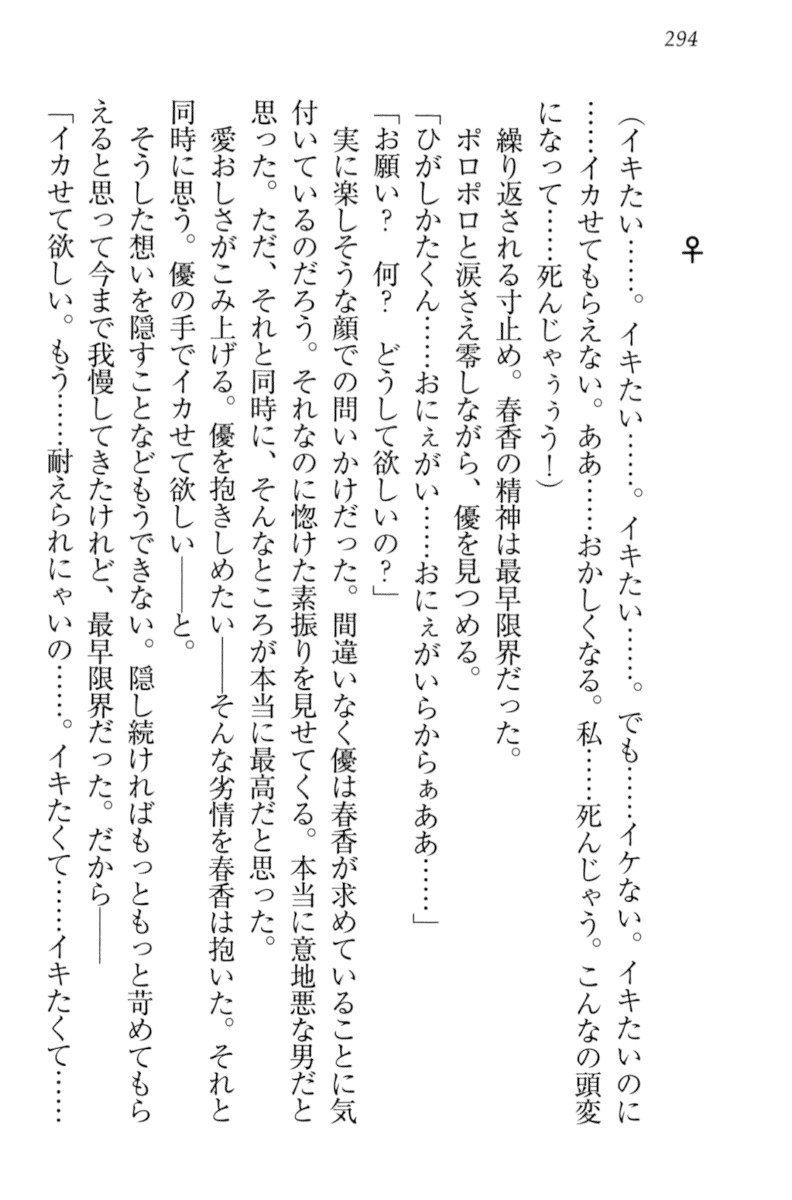 294
♀
（イキたい……。イキたい……。イキたい……。でも……イケない。イキたいのに
……イカせてもらえない。ああ……おかしくなる。私……死んじゃう。こんなの頭変
になって……死んじゃぅぅう！）
繰り返される寸止め。春香の精神は最早限界だった。
ポロポロと涙さえ零しながら、優を見つめる。
「ひがしかたくん……おにぇがい……おにぇがいらからぁああ……」
「お願い？　何？　どうして欲しいの？」
実に楽しそうな顔での問いかけだった。間違いなく優は春香が求めていることに気
付いているのだろう。それなのに惚けた素振りを見せてくる。本当に意地悪な男だと
思った。ただ、それと同時に、そんなところが本当に最高だと思った。
愛おしさがこみ上げる。優を抱きしめたい――そんな劣情を春香は抱いた。それと
同時に思う。優の手でイカせて欲しい――と。
そうした想いを隠すことなどもうできない。隠し続ければもっともっと苛めてもら
えると思って今まで我慢してきたけれど、最早限界だった。だから――
「イカせて欲しい。もう……耐えられにゃいの……。イキたくて……イキたくて……